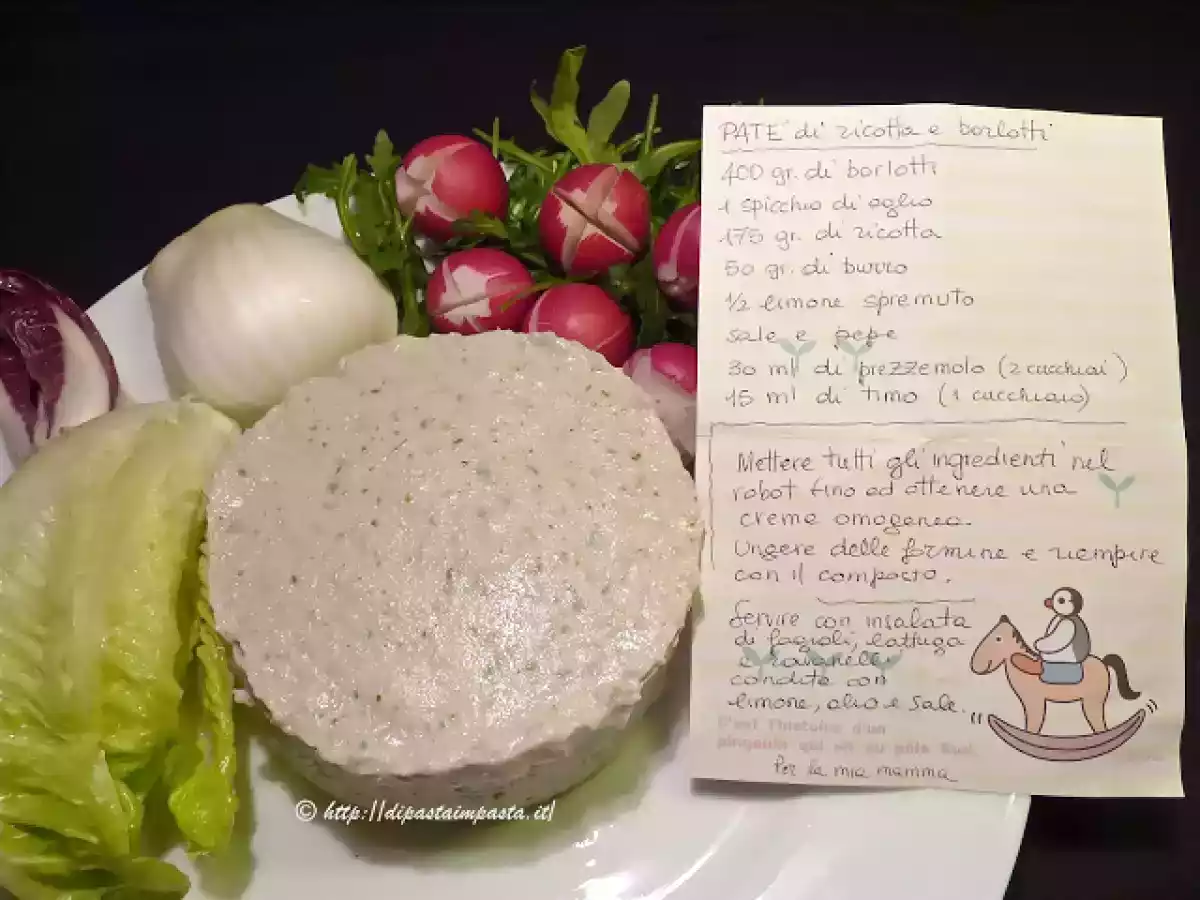 PATE' di ricotta e borlotti
400 gr. di borlotti
1 spicchio di aglio
175 gr. di ricotta
50 gr. di burro
1/2 limone spremuto
sale e pepe
30 ml di prezzemolo (2 cucchiai)
15 ml di timo (1 cucchiaio)
Mettere tutti gli ingredienti nel
robot fino ad ottenere una
creme omogenea.
Ungere delle formine e riempire
con il composto.
Servire con insalata
di fagioli, lattuga
e ravanelli
condite con
limone, olio e sale.
C'est l'histoire d'un
pingouin qui vit au pôle Sud.
Per la mia mamma
© http://dipastaimpasta.it/